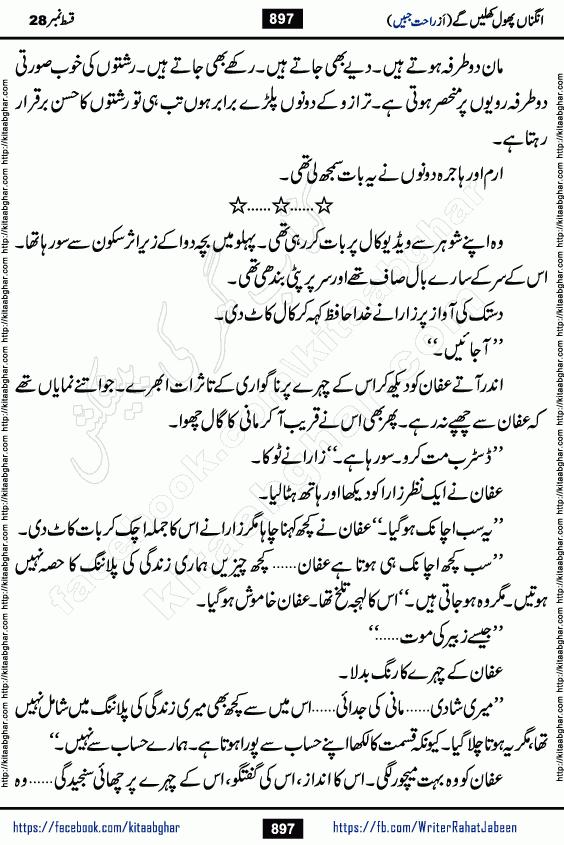 انگناں پھول کھلیں گے (از راحت جبیں)
897
قسط نمبر 28
مان دو طرفہ ہوتے ہیں۔ دیے بھی جاتے ہیں۔ رکھے بھی جاتے ہیں۔ رشتوں کی خوب صورتی
دو طرفہ رویوں پر منحصر ہوتی ہے۔ ترازو کے دونوں پلڑے برابر ہوں تب ہی تو رشتوں کا حسن برقرار
رہتا ہے۔
ارم اور ہاجرہ دونوں نے یہ بات سمجھ لی تھی۔
☆......☆......☆
وہ اپنے شوہر سے ویڈیو کال پر بات کر رہی تھی۔ پہلو میں بچہ دوا کے زیر اثر سکون سے سو رہا تھا۔
اس کے سر کے سارے بال صاف تھے اور سر پر پٹی بندھی تھی۔
دستک کی آواز پر زارا نے خدا حافظ کہہ کر کال کاٹ دی۔
’’آجائیں۔‘‘
اندر آتے عفان کو دیکھ کر اس کے چہرے پر ناگواری کے تاثرات ابھرے۔ جو اتنے نمایاں تھے
کہ عفان سے چھپے نہ رہے۔ پھر بھی اس نے قریب آکر مانی کا گال چھوا۔
’’ڈسٹرب مت کرو۔ سو رہا ہے۔‘‘ زارا نے ٹوکا۔
عفان نے ایک نظر زارا کو دیکھا اور ہاتھ ہٹالیا۔
’’یہ سب اچانک ہوگیا۔‘‘ عفان نے کچھ کہنا چاہا مگر زارا نے اس کا جملہ اچک کر بات کاٹ دی۔
’’سب کچھ اچانک ہی ہوتا ہے عفان...... کچھ چیزیں ہماری زندگی کی پلاننگ کا حصہ نہیں
ہوتیں۔ مگر وہ ہو جاتی ہیں۔‘‘ اس کا لہجہ تلخ تھا۔ عفان خاموش ہوگیا۔
’’جیسے زبیر کی موت.....‘‘
عفان کے چہرے کا رنگ بدلا۔
’’میری شادی...... مانی کی جدائی......اس میں سے کچھ بھی میری زندگی کی پلاننگ میں شامل نہیں
تھا، مگر یہ ہوتا چلا گیا۔ کیونکہ قسمت کا لکھا اپنے حساب سے پورا ہوتا ہے۔ ہمارے حساب سے نہیں۔‘‘
عفان کو وہ بہت میچور لگی۔ اس کا انداز، اس کی گفتگو، اس کے چہرے پر چھائی سنجیدگی...... وہ
https://facebook.com/kitaabghar
897
https://fb.com/WriterRahatJabeen
http://kitaabghar.com http://kitaabghar.com http://kitaabghar.com http://kitaabghar.com http://kitaabghar.com http://kitaabghar.com
http://kitaabghar.com http://kitaabghar.com http://kitaabghar.com http://kitaabghar.com http://kitaabghar.com http://kitaabghar.com
کتاب گھر کی پیشکش
facebook.com/kitaabghar
kitaabghar.com